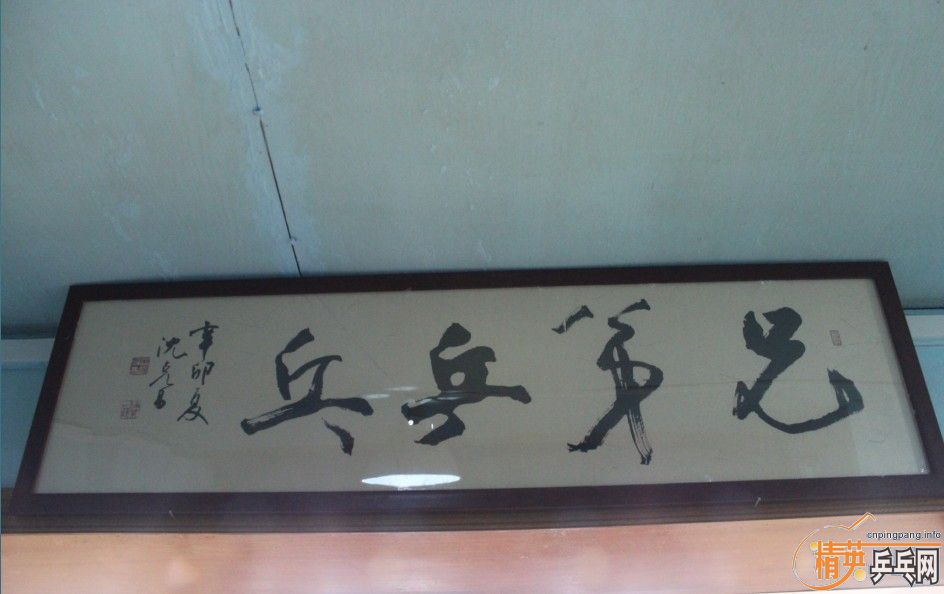 兄弟乒乓
辛卯夏
沈
cnpingpang.info
精英乒乓网